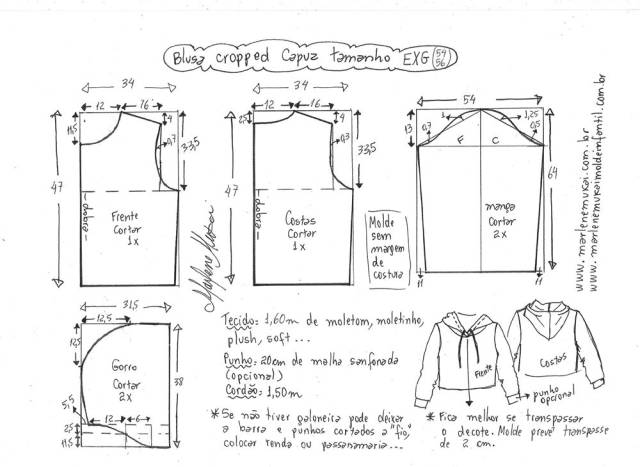 Blusa cropped Capuz tamanho EXG (54 56)
34
12
16
11,5
4
0,7
33,5
47
dobra
Frente
Cortar
1x
34
12
16
2,5
4
0,3
33,5
47
dobra
Costas
Cortar
1x
Marlene Mukai
Molde
sem
margem
de
costura
54
13
1
1,25
0,7
0,5
F
C
64
manga
Cortar
2x
11
11
www.marlenemukai.com.br
www.marlenemukaimoldeinfantil.com.br
31,5
12,5
12,5
Gorro
Cortar
2x
38
5,5
12
6
2,5
11,5
Tecido: 1,60m de moletom, moletinho,
plush, soft...
Punho: 20cm de malha sanfonada
(opcional)
Cordão: 1,50m
* Se não tiver galoneira pode deixar
a barra e punhos cortados a "fio",
colocar renda ou passamanaria...
Frente
Costas
punho
opcional
* Fica melhor se transpassar
o decote. Molde prevê transpasse
de 2 cm.